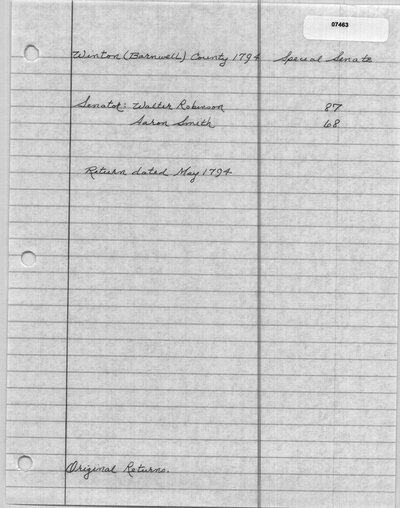 07463
Winton (Barnwell) County 1794 Special Senate
Senator: Walter Robinson 87
Aaron Smith 68
Return dated May 1794
Original Returns.